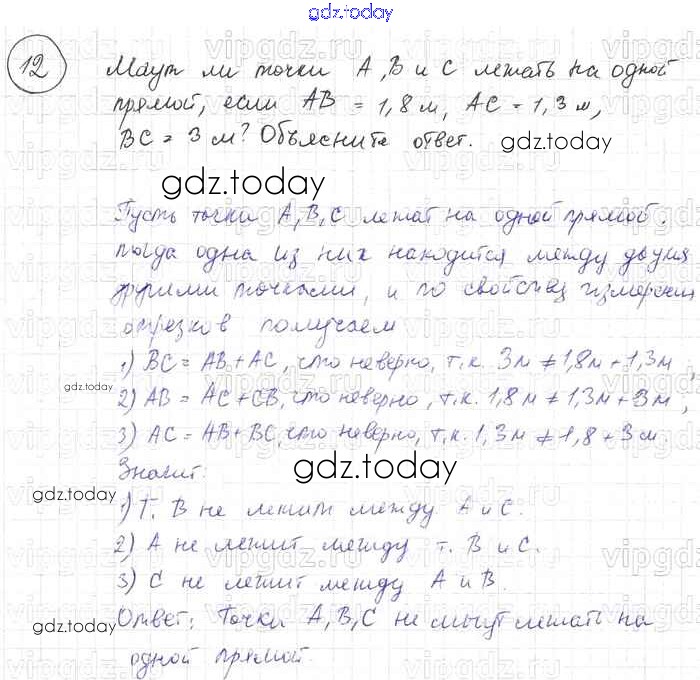 gdz.today
12
Могут ли точки A, B и C лежать на одной
прямой, если AB = 1,8 м, AC = 1,3 м,
BC = 3 м? Объясните ответ.
gdz.today
gdz.today
Пусть точки A, B, C лежат на одной прямой.
тогда одна из них находится между двумя
другими точками, и по свойству измерения
отрезков получаем
1) BC = AB + AC, что неверно, т.к. 3м ≠ 1,8м + 1,3м,
gdz.today
2) AB = AC + CB, что неверно, т.к. 1,8м ≠ 1,3м + 3м,
3) AC = AB + BC, что неверно, т.к. 1,3м ≠ 1,8 + 3м.
Значит:
gdz.today
gdz.today
1) Т. B не лежит между A и C.
2) A не лежит между т. B и C.
3) C не лежит между A и B.
Ответ: Точки A, B, C не могут лежать на
gdz.today
одной прямой.